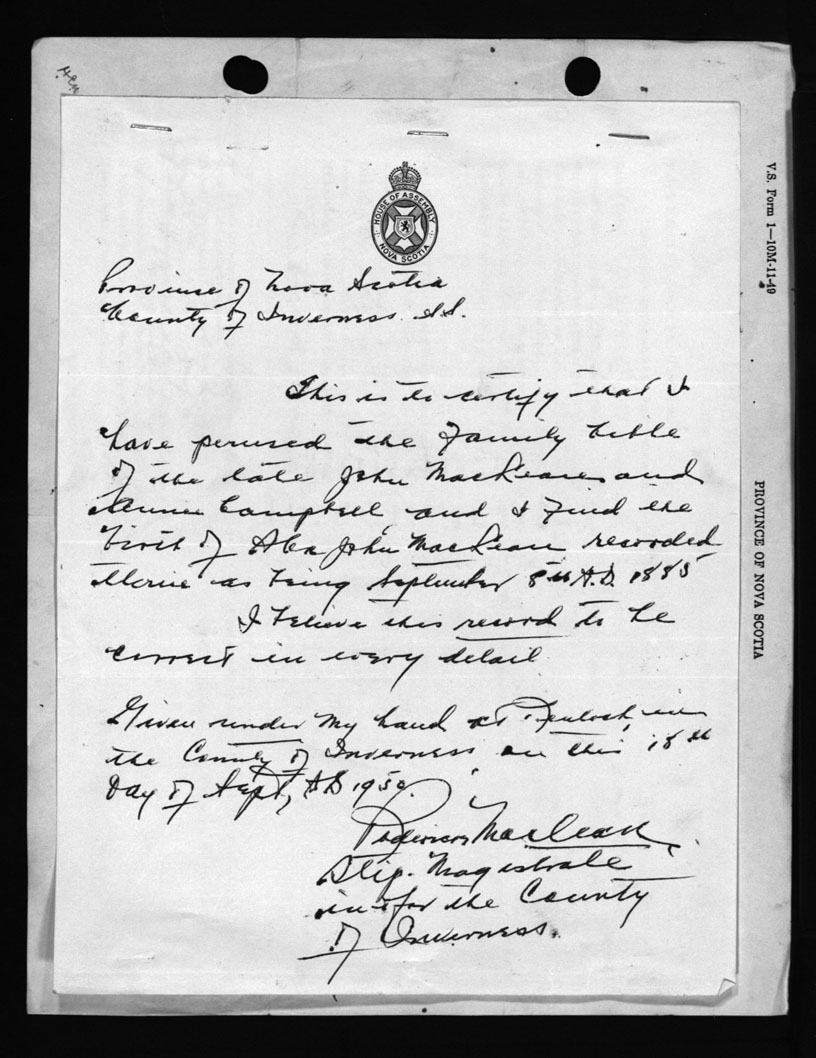 HOUSE OF ASSEMBLY
NOVA SCOTIA
Province of Nova Scotia
County of Inverness. S.S.
This is to certify that I
have perused the Family bible
of the late John MacLean and
Campbell, and I find the
birth of Alex John MacLean recorded
as being September 8th A.D. 1885
I believe this record to be
correct in every detail
Given under my hand at Kenloch, in
the County of Inverness on this 18th
Day of Sept, AD 1950.
MacLean
Stip. Magistrate
in & for the County
of Inverness.
V.S. Form 1—10M-11-49
PROVINCE OF NOVA SCOTIA